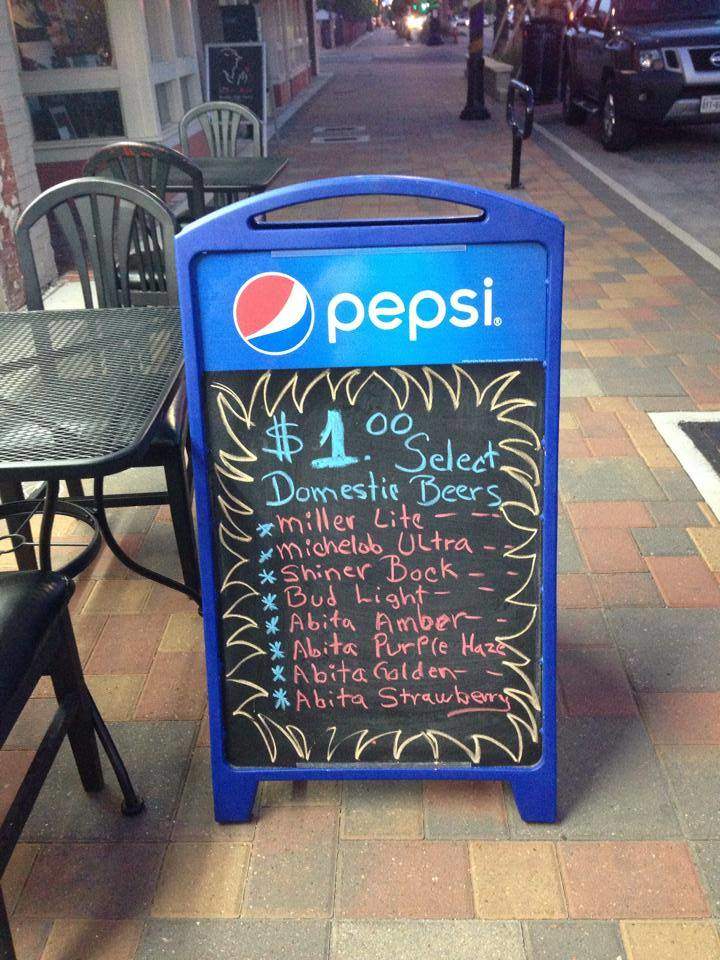 pepsi
$1.00 Select
Domestic Beers
* miller Lite - - -
* michelob ULtra - -
* Shiner Bock - - -
* Bud Light - -
* Abita Amber - -
* Abita Purple Haze
* Abita Golden - -
* Abita Strawberry